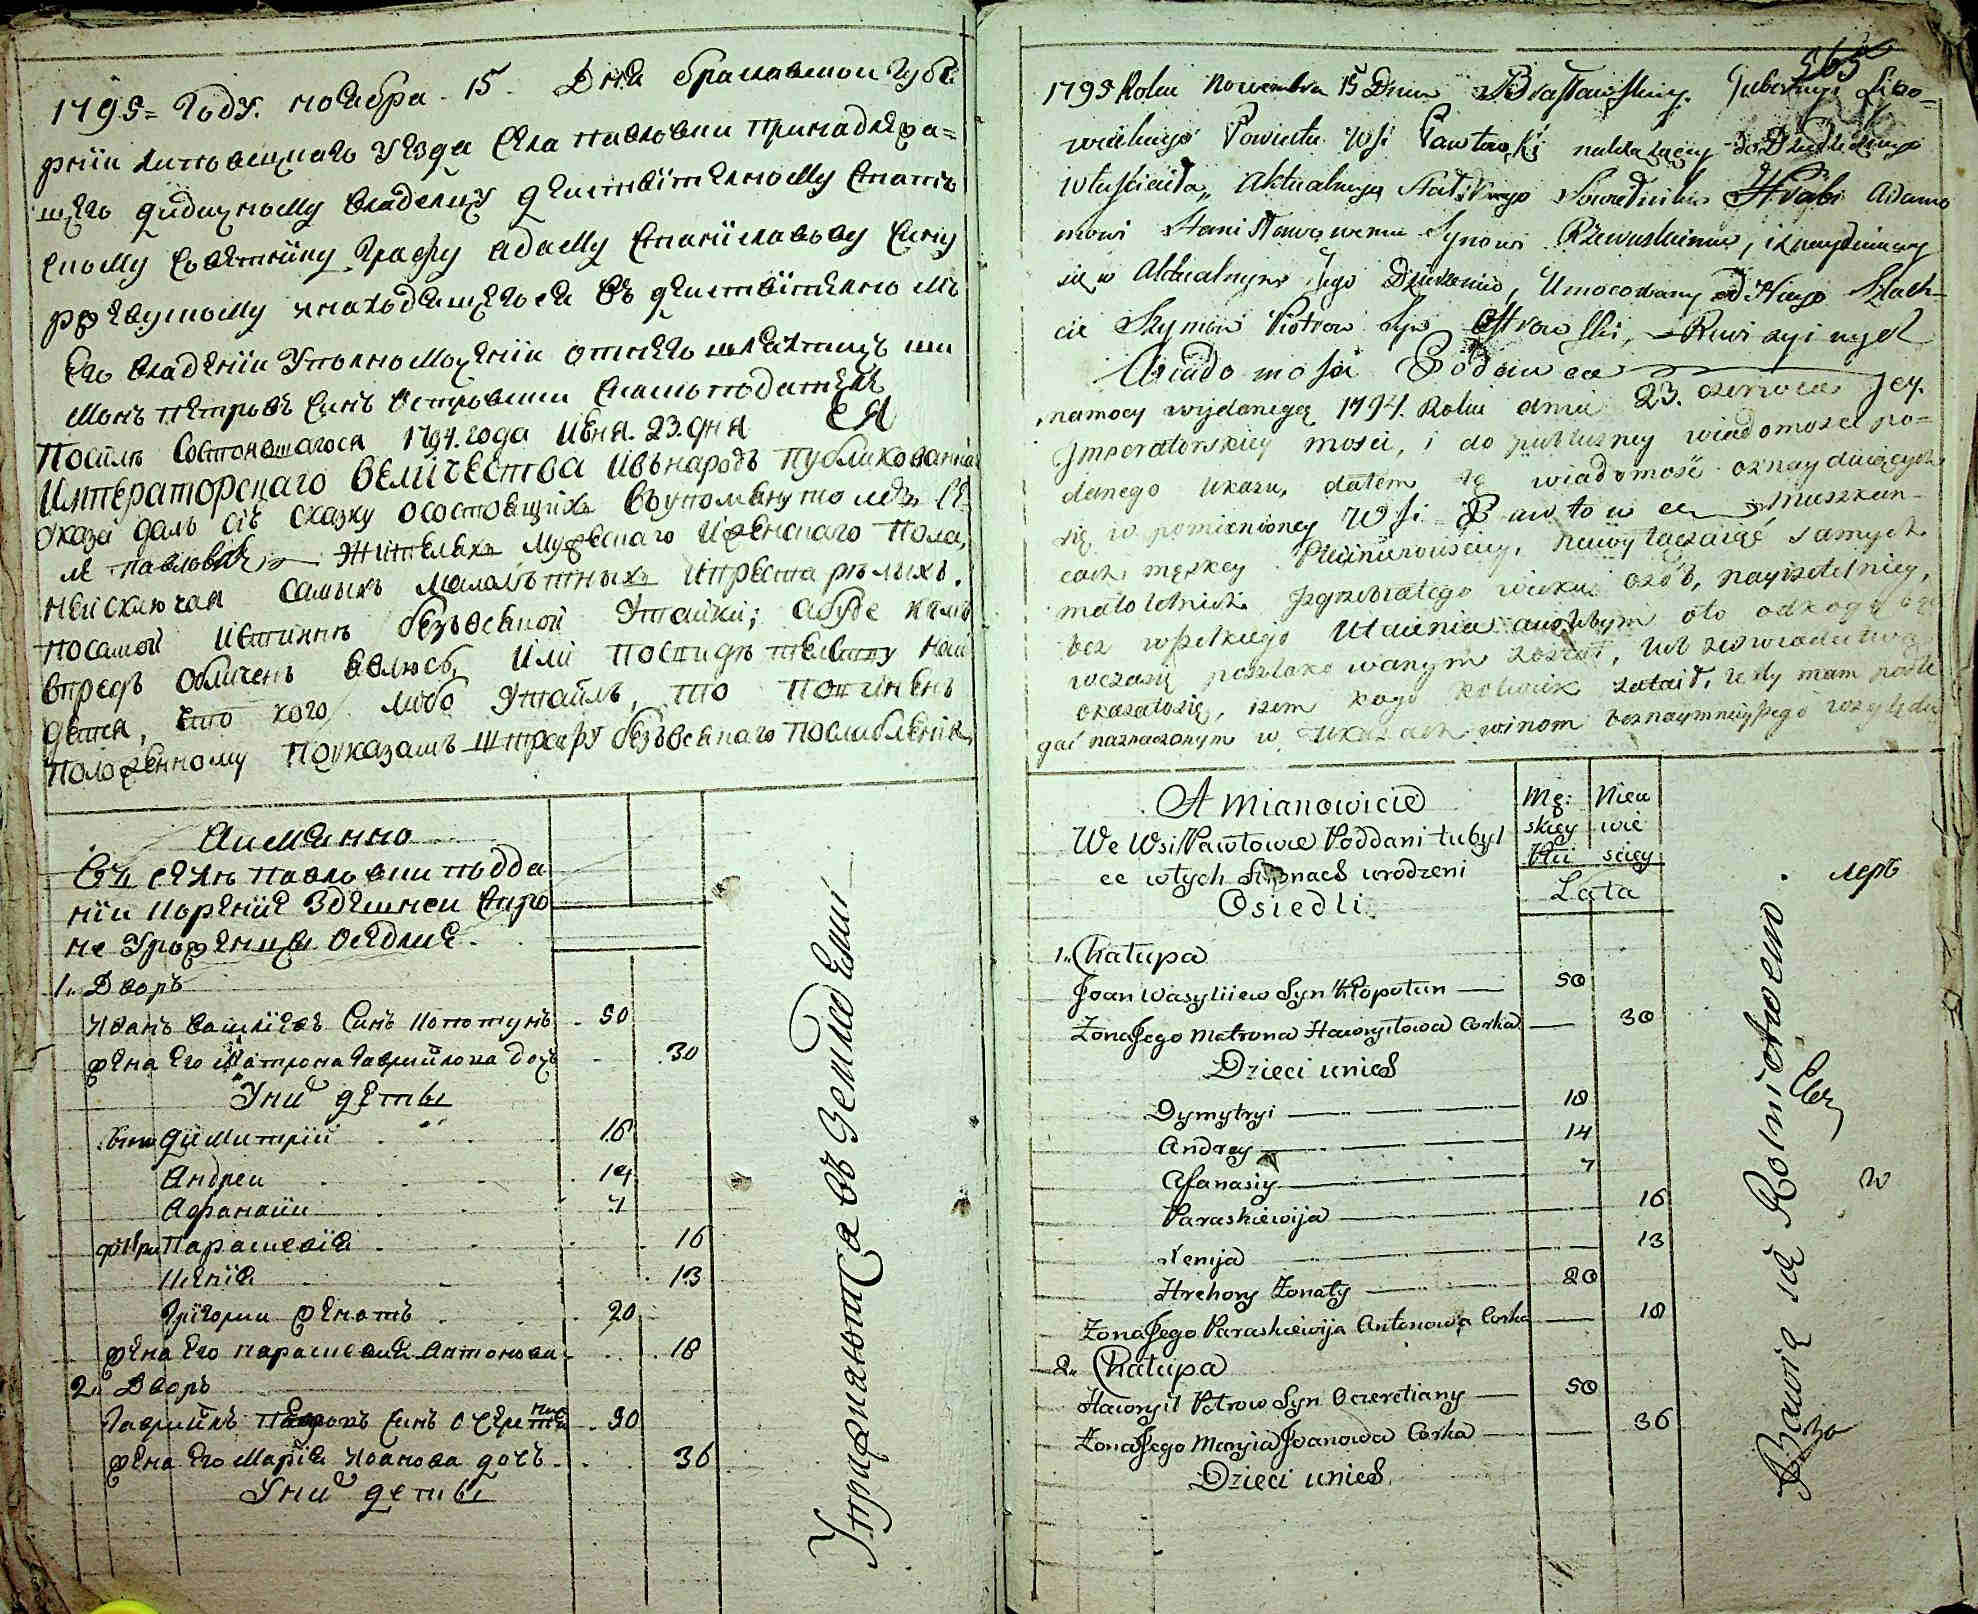 1795= Году. ноебра 15 Дня браславшои губе
рнїи липовецкаго уезда села павловки принадлежа=
щего дидичному владелцу действителному статс
скому советнику графу адаму станиславову сину
ржевускому инаходящегося въ действителномъ
его владенїи уполномоченїи отнего шляхтичъ ши
монъ петровъ синъ островски
После состоявшагося 1794. года Июня. 23. дня ЕЯ
ИМПераторскаго ВЕЛИЧЕСТВА ивънародъ публикованна
указа далъ сїю сказку осостоящихъ въупомянутомъ се-
ле павловке жителяхъ мужескаго иженскаго пола,
неисключая самыхъ малолѣтныхъ ипрестарѣлыхъ.
посамой истиннѣ безъвсякой утайки; абуде кѣмъ
впредь обличенъ явлюсь, или посвидѣтелству най
дется, что кого либо утаилъ, то повиненъ
положенному поуказамъ штрафу безъвсякаго послабленїя,
Аименно
Въ селѣ павловки подда
нїи коренїе здешнеи сторо
не урожденци оседлие.
1. Дворъ
Иванъ василїевъ синъ клопотунъ 50
жена его матрона гаврилова дочъ 30
У них дети
димитрїи 18
Андреи 14
Афанасїи 7
Парасковїя 16
Ксенїя 13
Григории женатъ 20
жена его парасковия антонова 18
2. Дворъ
Гаврилъ петровъ синъ очеретяни 50
жена его Марїя Иванова дочь 36
У них дети
Упражняютса въ Земледелии
565
1795 Roku Nowembra 15 Dnia Bracławskiey Gubernyi Lipo=
wieckiego Powiatu Wsi Pawłowki należącey do Dziedzicznego
właściciela, Aktualnego Statskiego Sowietnika Hrabi Adamo
mowi Stanisławowemu Synowi Rzewuskiemu, i znayduiącey
się w Aktualnym Jego Dzierżeniu, Umocowany od Niego Szlach-
cic Szymon Piotrow Syn Ostrowski,
Wiadomość Podaie
namocy wydanego 1794. Roku dnia 23. czerwca Jey.
Jmperatorskiey mości, i do publiczney wiadomości po=
danego ukazu, dałem tę wiadomość oznayduiących
się w pomienioney Wsi Pawłowce Mieszkan-
cach męzkey Płci, niewyłączaiąc samych
małoletnich zgrzybiałego wieku osób, nayrzetelniey,
bez wszelkiego Utaienia oto odkogo
wczasie poszlakowanym został, lub zeswiadectwa
okazałosię, iżem kogo kolwiek zataił, tedy mam podle
gać naznaczonym w ukazach winom beznaymnieyszego względu
A Mianowicie
We Wsi Pawłowce Poddani tubyl
ce wtych stronach urodzeni
Osiedli.
Mę: skiey Płci
Niewie sciey
Lata
1. Chałupa
Jwan Wasyliiew Syn Kłopotun — 50
Żona Jego Matrona Hawryłowa Corka — 30
Dzieci unich
Dymytryi — 18
Andrey — 14
Afanasiy — 7
Paraskiewija — 16
Xenija — 13
Hrehory Żonaty — 20
Żona Jego Paraskiewija Antonowa Corka — 18
2. Chałupa
Hawryił Petrow Syn Oczeretiany — 50
Żona Jego Maryia Jwanowa Corka — 36
Dzieci unich.
Bawią się Rolnictwem.